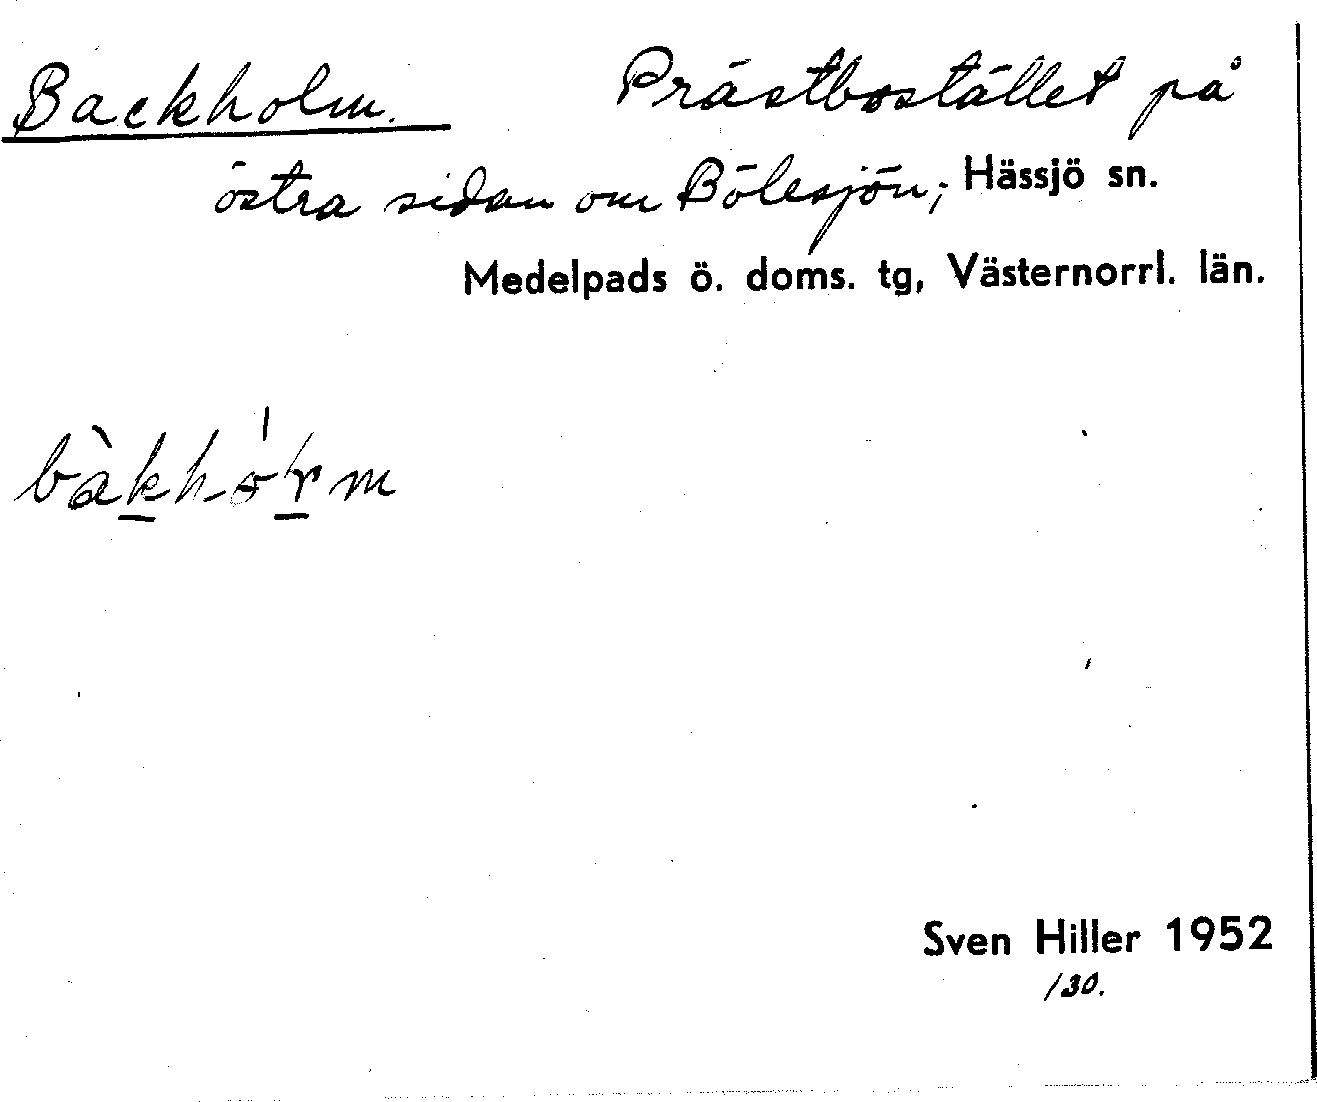 Backholm. Prästbostället på
östra sidan om Bölesjön; Hässjö sn.
Medelpads ö. doms. tg, Västernorrl. län.
Sven Hiller 1952
/30.